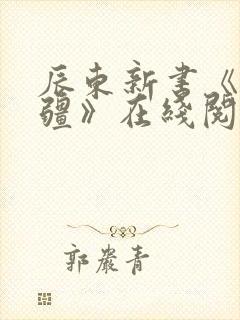 辰东新书《
疆》在线阅
郭岩青